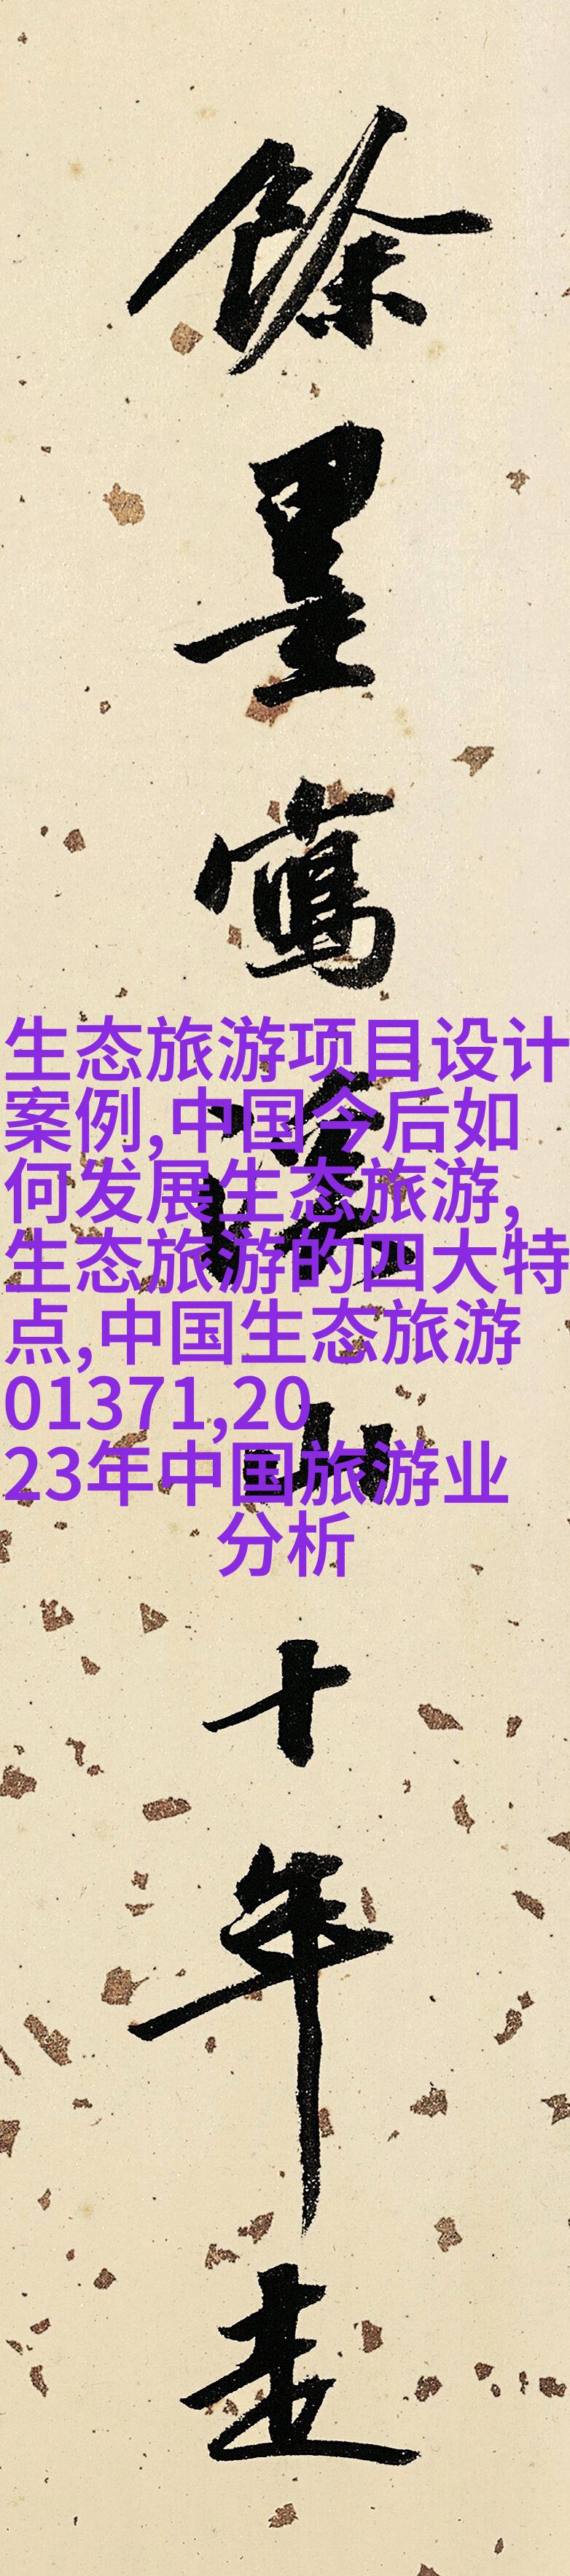 餘墨寫山十年走
生态旅游项目设计
案例,中国今后如
何发展生态旅游,
生态旅游的四大特
点,中国生态旅游
01371,20
23年中国旅游业
分析